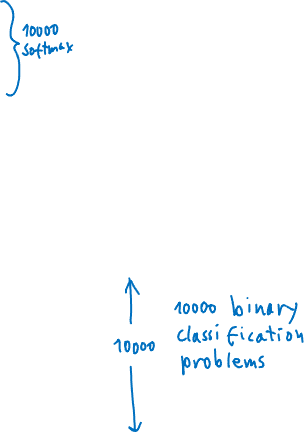 10000
softmax
10000
10000 binary
classification
problems